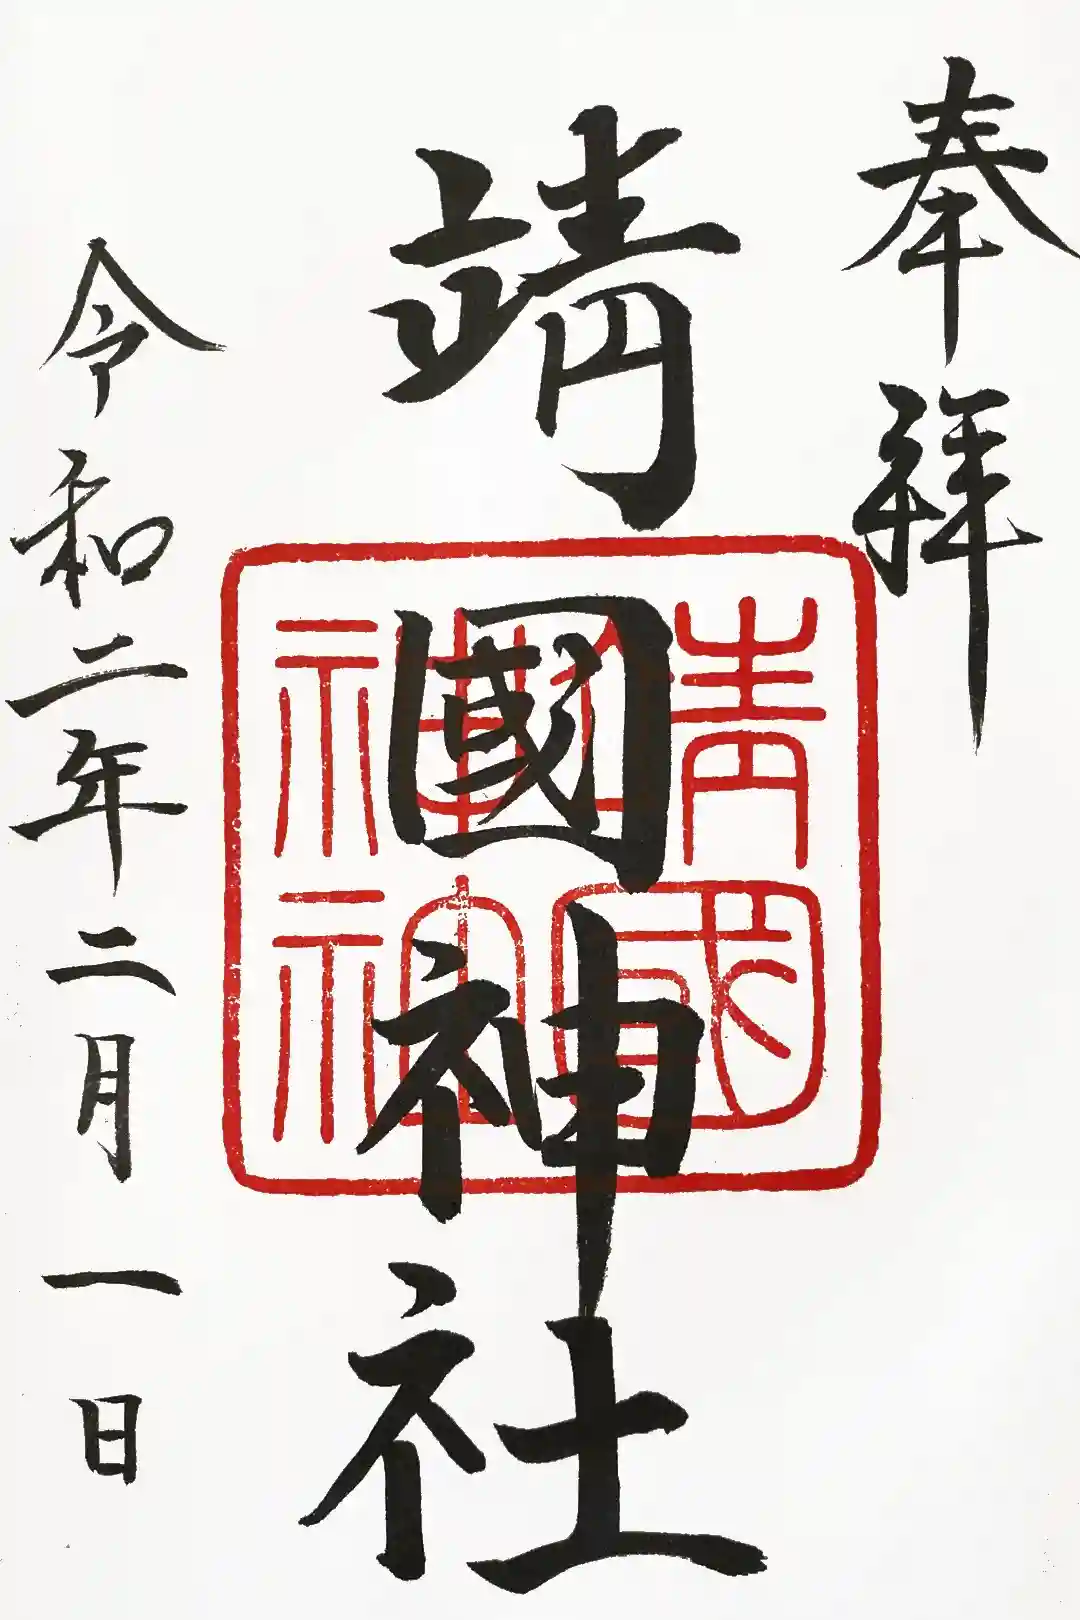 奉拝
靖國神社
靖國
神社
令和二年二月一日